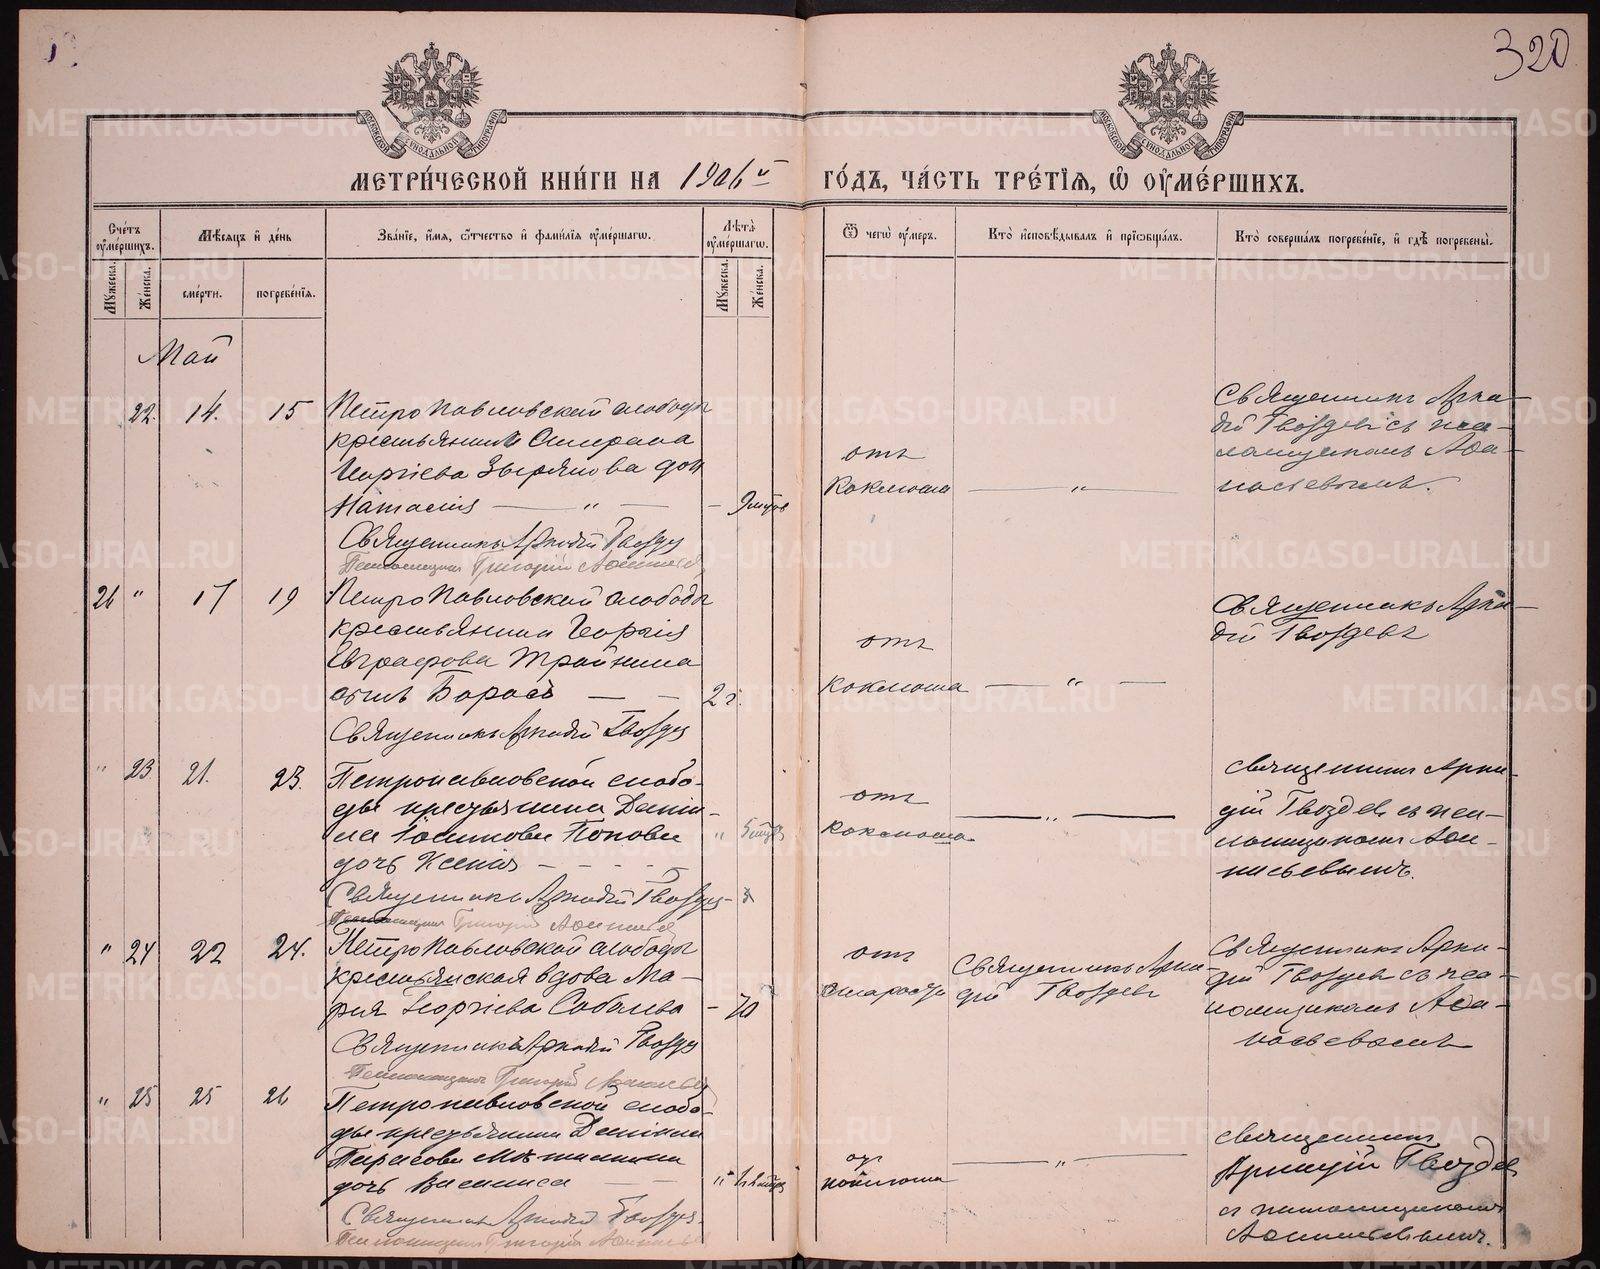 320
МЕТРИ́ЧЕСКОЙ КНИ́ГИ НА 1906й ГО́ДЪ, ЧА́СТЬ ТРЕ́ТІѦ, Ѡ҆ ОУ҆МЕ́РШИХЪ.
Сче́тъ оу҆ме́ршихъ.
Мꙋ́жеска.
Же́нска.
Мѣ́сѧцъ и҆ де́нь
сме́рти.
погребе́нїѧ.
Зва́нїе, и҆́мѧ, ѻ҆́тчество и҆ фами́лїѧ оу҆ме́ршагѡ.
Лѣ́та оу҆ме́ршагѡ.
Мꙋ́жеска.
Же́нска.
Ѿ чегѡ̀ оу҆́меръ.
Кто̀ и҆сповѣ́дывалъ и҆ прїѡбща́лъ.
Кто̀ соверша́лъ погребе́нїе, и҆ гдѣ̀ погребены̀.
Май
22. 14. 15
Петропавловской слободы
крестьянина
Георгіева Зырянова дочь
Наталія — " —
Священникъ Аркадій Гвоздев
Псаломщикъ Григорій
отъ
коклюша
— " —
Священникъ Арка-
дій Гвоздевъ съ пса-
ломщикомъ Афа-
насьевымъ.
26 " 17 19
Петропавловской слободы
крестьянина Георгія
Евграфова
сынъ Борисъ — —
2 г.
Священникъ Аркадій Гвоздев
отъ
коклюша
— " —
Священникъ Арка-
дій Гвоздевъ
" 23 21. 23.
Петропавловской слобо-
ды крестьянина Дани-
ла Попова
дочь Ксенія - - - -
Священникъ Аркадій Гвоздев
Псаломщикъ Григорій
отъ
коклюша
— " —
священникъ Арка-
дій Гвоздевъ съ пса-
ломщикомъ Афа-
насьевымъ.
" 24 22 24.
Петропавловской слободы
крестьянская вдова Ма-
рія Георгіева Соболева
- 70
Священникъ Аркадій Гвоздев
Псаломщикъ Григорій
отъ
старости
Священникъ Арка-
дій Гвоздевъ
Священникъ Арка-
дій Гвоздевъ съ пса-
ломщикомъ Афа-
насьевымъ
" 25 25 26
Петропавловской слобо-
ды крестьянина
Тарасова
дочь Василиса — —
Священникъ Аркадій Гвоздев
Псаломщикъ Григорій
от
коклюша
— " —
священникъ
Аркадій Гвоздев
с псаломщикомъ